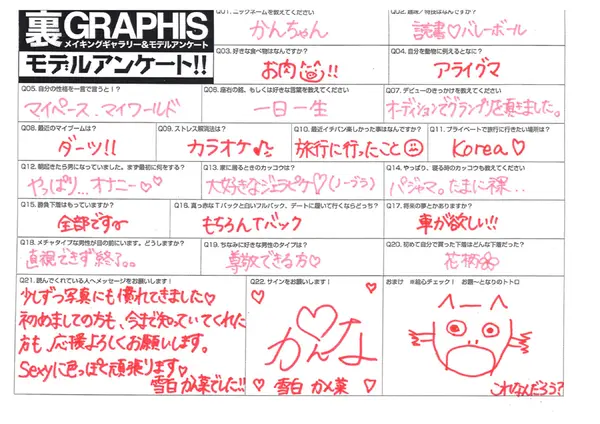 裏GRAPHIS
メイキングギャラリー&モデルアンケート
モデルアンケート!!
Q01. ニックネームを教えてください
かんちゃん
Q02. 趣味/特技はなんですか?
読書♡バレーボール
Q03. 好きな食べ物はなんですか?
お肉!!
Q04. 自分を動物に例えるとなに?
アライグマ
Q05. 自分の性格を一言で言うと!?
マイペース、マイワールド
Q06. 座右の銘、もしくは好きな言葉を教えてください
一日一生
Q07. デビューのきっかけを教えてください
オーディションでグランプリを頂きました。
Q08. 最近のマイブームは?
ダーツ!!
Q09. ストレス解消法は?
カラオケ♪
Q10. 最近イチバン楽しかった事はなんですか?
旅行に行ったこと
Q11. プライベートで旅行に行きたい場所は?
Korea♡
Q12. 朝起きたら男になっていました。まず最初に何をする?
やっぱり…オナニー♡♡
Q13. 家に居るときのカッコウは?
大好きなジェラピケ♡(ノーブラ)
Q14. やっぱり、寝る時のカッコウも教えてください
パジャマ。たまに裸…
Q15. 勝負下着はもっていますか?
全部です
Q16. 真っ赤なTバックと白いフルバック、デートに履いて行くならどっち?
もちろんTバック
Q17. 将来の夢とかありますか?
車が欲しい!!
Q18. メチャタイプな男性が目の前にいます。どうしますか?
直視できず終了。。
Q19. ちなみに好きな男性のタイプは?
尊敬できる方♡
Q20. 初めて自分で買った下着はどんな下着だった?
花柄
Q21. 読んでくれている人へメッセージをお願いします!
少しずつ写真にも慣れてきました♡
初めましての方も、今まで知っていてくれた
方も、応援よろしくお願いします。
Sexyに色っぽく頑張ります♡
雪白 かん菜でした!!
Q22. サインをお願いします!
かんな
♡ 雪白 かん菜 ♡
おまけ ※絵心チェック! お題〜となりのトトロ
これなんだろう?